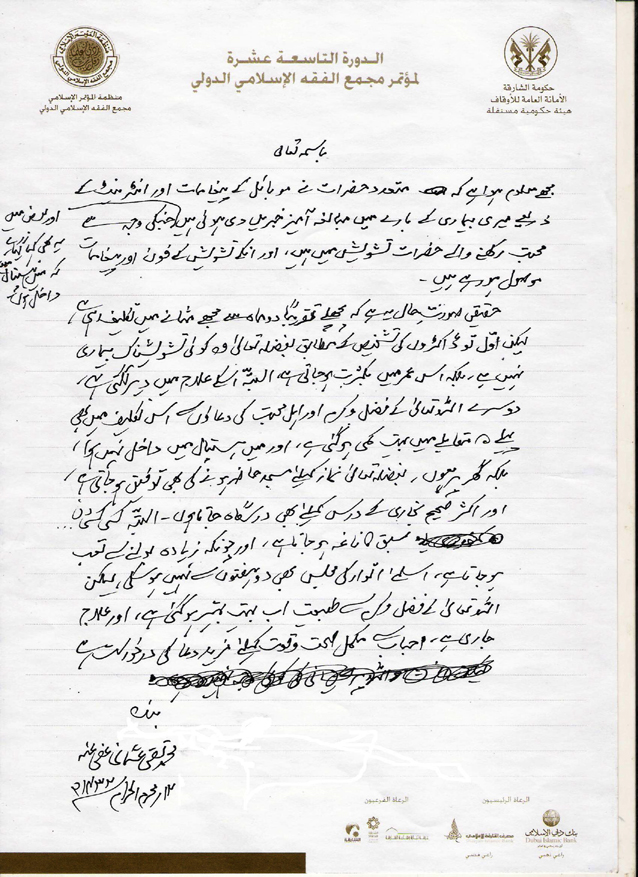 الدورة التاسعة عشرة
لمؤتمر مجمع الفقه الإسلامي الدولي
منظمة المؤتمر الإسلامي
مجمع الفقه الإسلامي الدولي
حكومة الشارقة
الأمانة العامة للأوقاف
هيئة حكومية مستقلة
باسمہ تعالیٰ
مجھے معلوم ہوا ہے کہ متعدد حضرات نے موبائل کے پیغامات اور انٹرنیٹ کے
ذریعے میری بیماری کے بارے میں مبالغہ آمیز خبریں دی ہوئی ہیں جنکی وجہ سے
اور بعض میں
یہ بھی کہا گیا ہے
کہ میں ہسپتال میں
داخل ہوں
محبت رکھنے والے حضرات تشویش میں ہیں، اور انکے تشویش کے فون اور پیغامات
موصول ہو رہے ہیں۔
حقیقی صورتِ حال یہ ہے کہ پچھلے تقریباً دو ماہ سے مجھے مثانے میں تکلیف رہی ہے
لیکن اوّل تو ڈاکٹروں کی تشخیص کے مطابق بفضلہ تعالیٰ وہ کوئی تشویشناک بیماری
نہیں ہے، بلکہ اس عمر میں بکثرت ہو جاتی ہے، البتہ اسکے علاج میں دیر لگتی ہے،
دوسرے اللہ تعالیٰ کے فضل و کرم اور اہل محبت کی دعاؤں سے اس تکلیف میں بھی
پہلے کے مقابلے میں بہت کمی ہو گئی ہے، اور میں ہسپتال میں داخل نہیں ہوا،
بلکہ گھر پر ہوں، بفضلہ تعالیٰ نماز کیلئے مسجد حاضر ہونے کی بھی توفیق ہو جاتی ہے،
اور اکثر صحیح بخاری کے درس کیلئے بھی درسگاہ جاتا ہوں۔ البتہ کسی کسی دن
سبق کا ناغہ ہو جاتا ہے، اور چونکہ زیادہ بولنے سے تعب
ہو جاتا ہے، اسلئے اتوار کی مجلس بھی دو ہفتوں سے نہیں ہو سکی، لیکن
اللہ تعالیٰ کے فضل و کرم سے طبیعت اب بہت بہتر ہو گئی ہے، اور علاج
جاری ہے، احباب سے مکمل صحت و قوت کیلئے مزید دعا کی درخواست ہے
بندہ
محمد تقی عثمانی عفی عنہ
۱۲ محرم الحرام ۱۴۳۲ھ
الرعاة الرئيسيون
الرعاة الفرعيون
بنك دبي الإسلامي
Dubai Islamic Bank
راعي ذهبي
مصرف الشارقة الإسلامي
راعي فضي